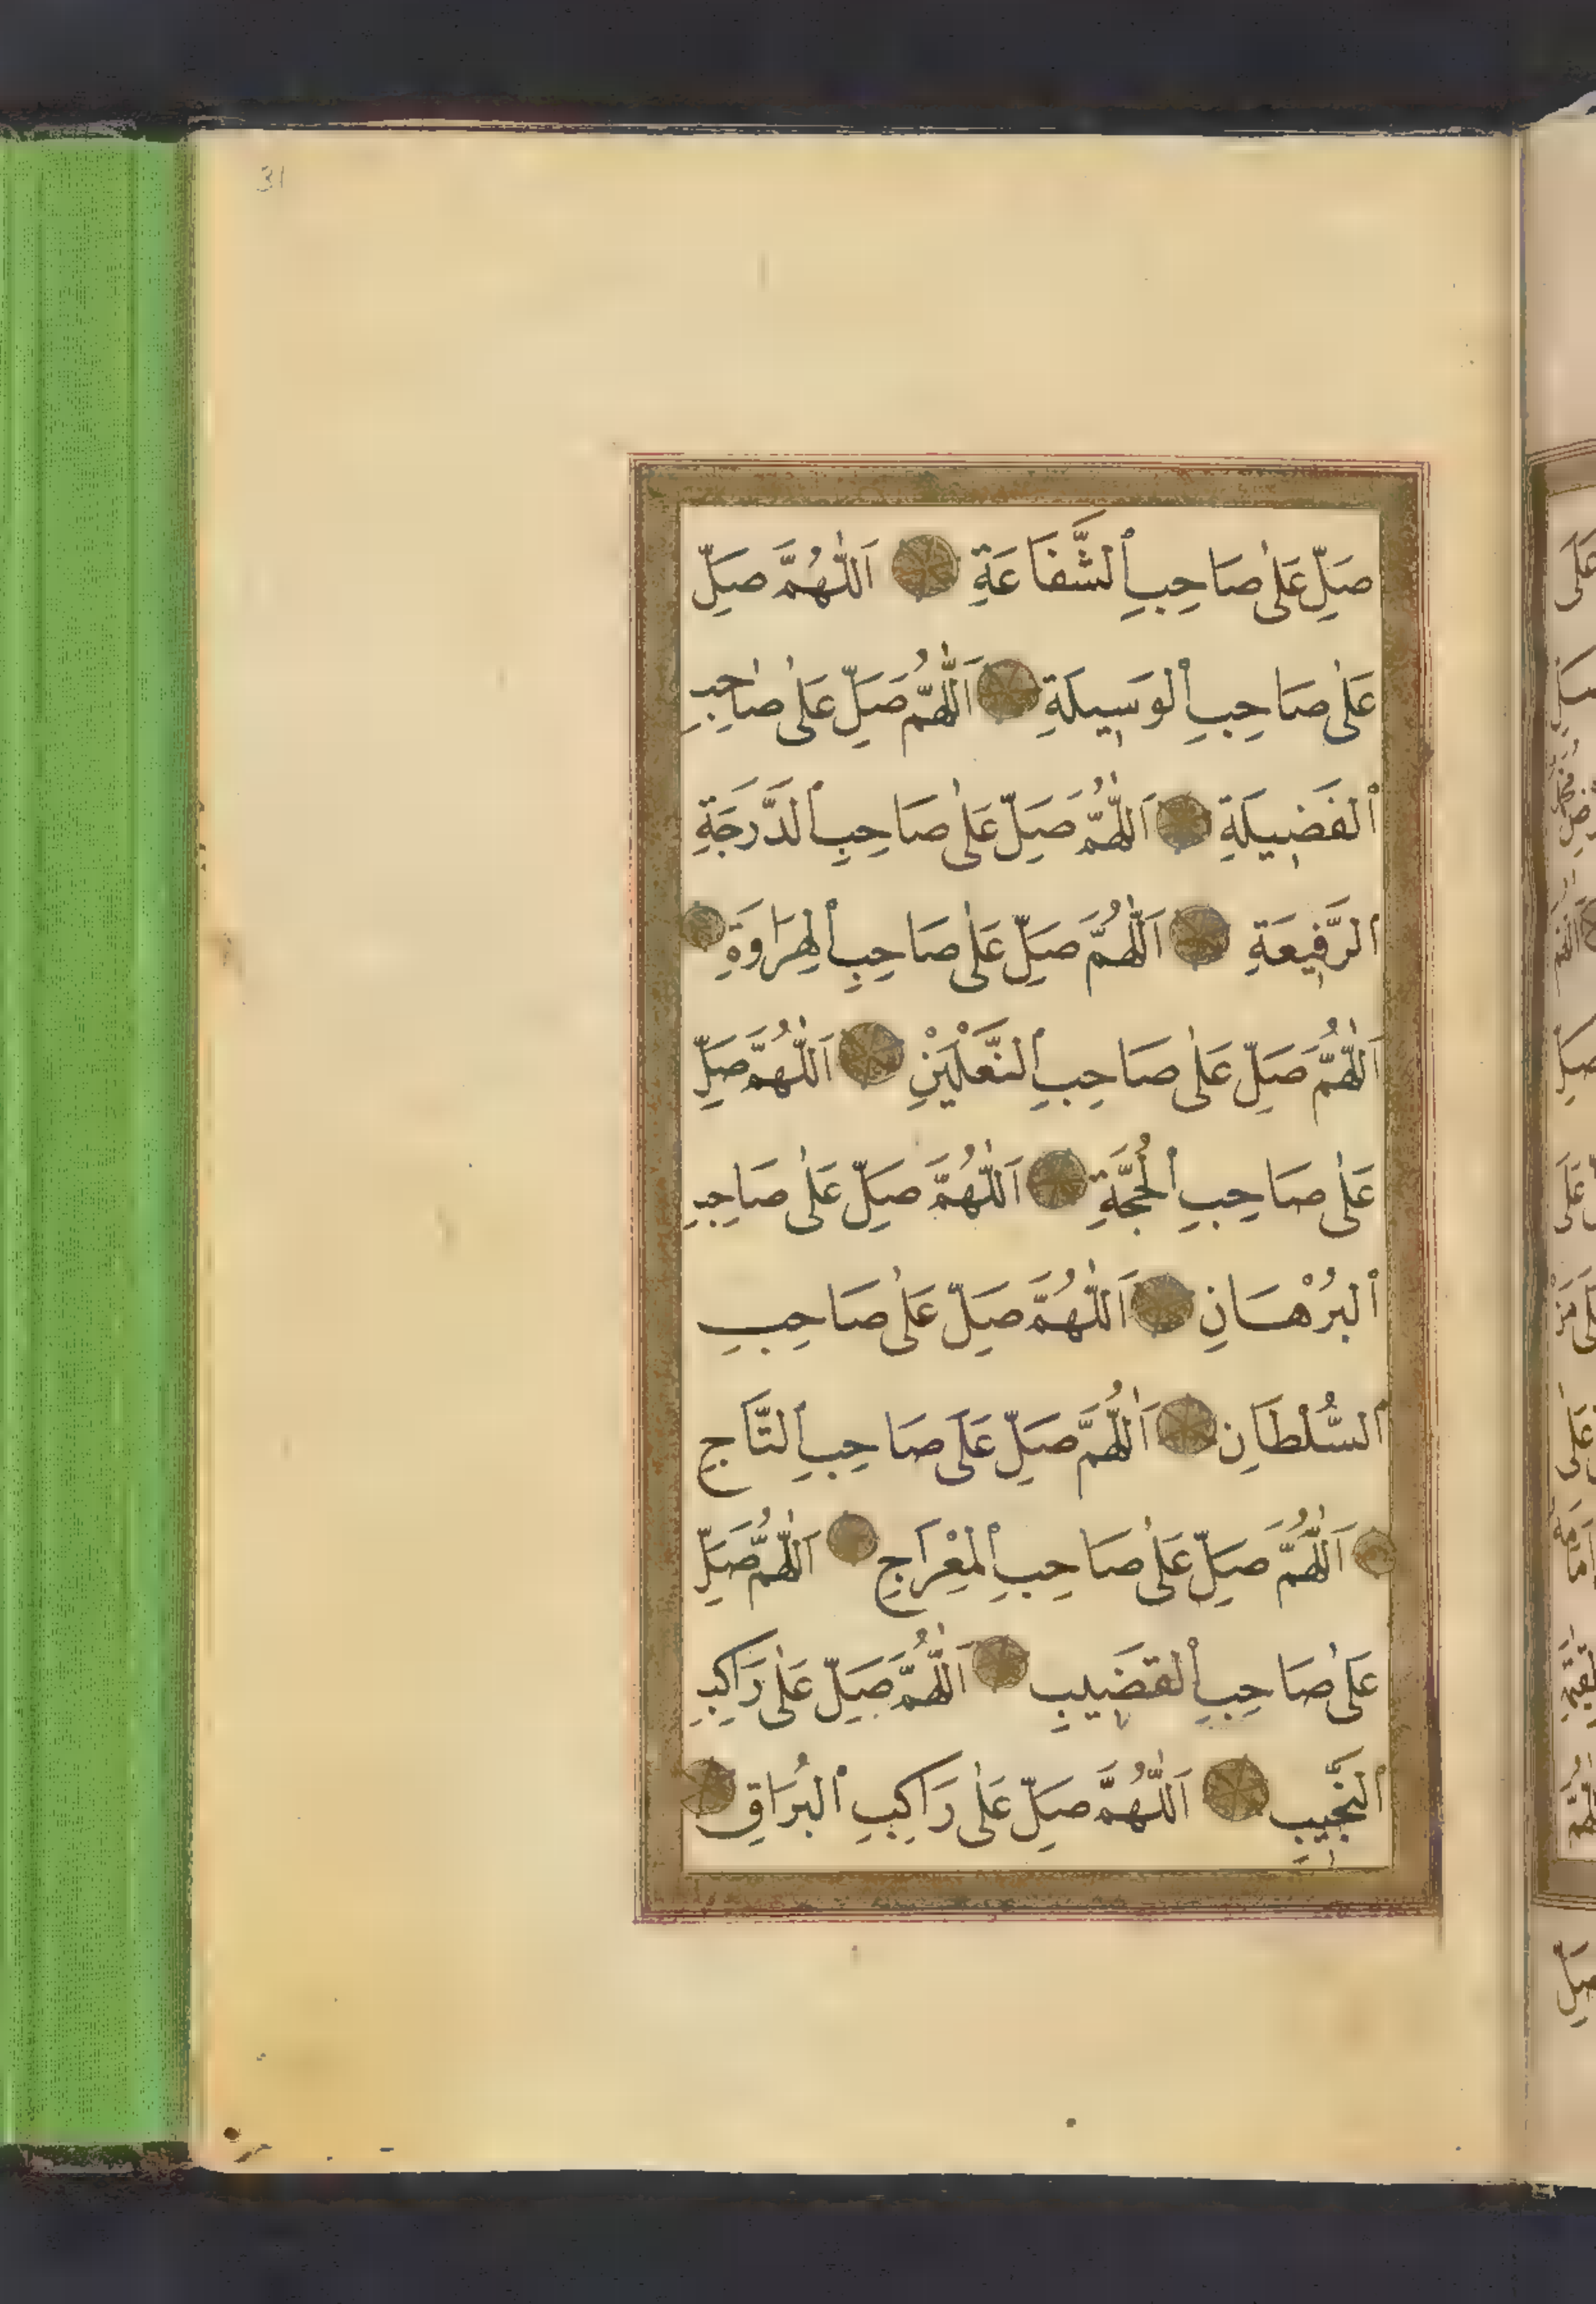 31
صَلِّ عَلٰى صَاحِبِ ٱلشَّفَاعَةِ اَللّٰهُمَّ صَلِّ
عَلٰى صَاحِبِ ٱلوَسِيلَةِ اَللّٰهُمَّ صَلِّ عَلٰى صَاحِبِ
ٱلفَضِيلَةِ اَللّٰهُمَّ صَلِّ عَلٰى صَاحِبِ ٱلدَّرَجَةِ
ٱلرَّفِيعَةِ اَللّٰهُمَّ صَلِّ عَلٰى صَاحِبِ ٱلهِرَاوَةِ
اَللّٰهُمَّ صَلِّ عَلٰى صَاحِبِ ٱلنَّعْلَيْنِ اَللّٰهُمَّ صَلِّ
عَلٰى صَاحِبِ ٱلحُجَّةِ اَللّٰهُمَّ صَلِّ عَلٰى صَاحِبِ
ٱلبُرْهَانِ اَللّٰهُمَّ صَلِّ عَلٰى صَاحِبِ
ٱلسُّلْطَانِ اَللّٰهُمَّ صَلِّ عَلَى صَاحِبِ ٱلتَّاجِ
اَللّٰهُمَّ صَلِّ عَلٰى صَاحِبِ ٱلمِعْرَاجِ اَللّٰهُمَّ صَلِّ
عَلٰى صَاحِبِ ٱلقَضِيبِ اَللّٰهُمَّ صَلِّ عَلٰى رَاكِبِ
ٱلنَّجِيبِ اَللّٰهُمَّ صَلِّ عَلٰى رَاكِبِ ٱلبُرَاقِ